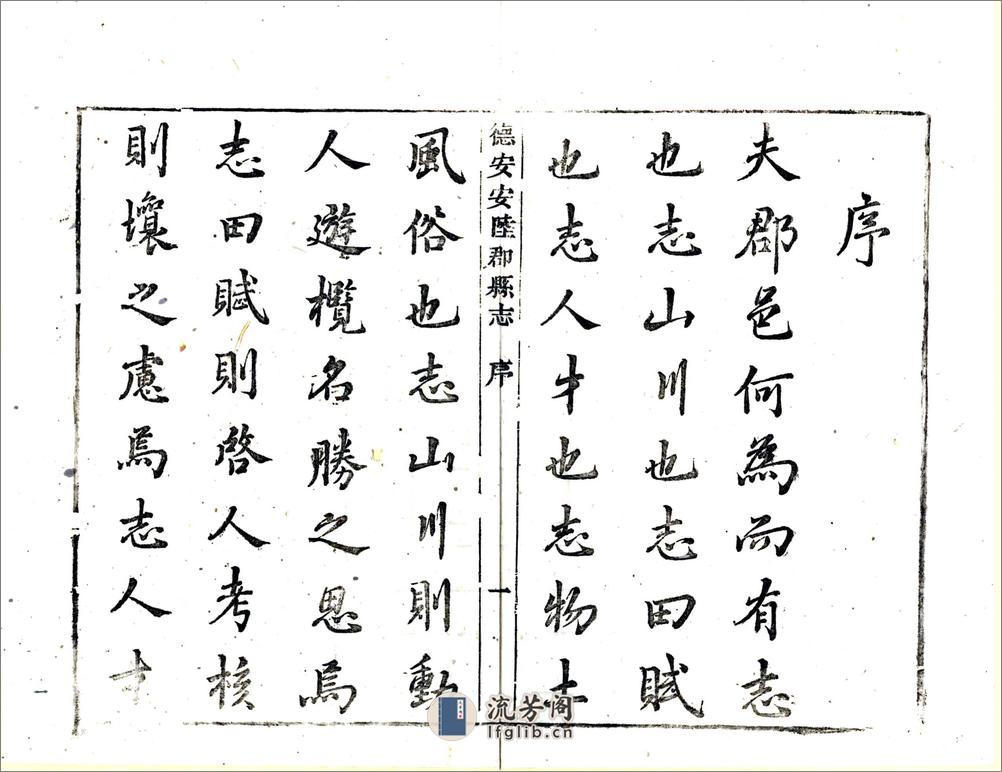 序
夫郡邑何為而有志
也志山川也志田賦
也志人才也志物土
德安安陸郡縣志 序 一
風俗也志山川則動
人遊欖名勝之思焉
志田賦則啓人考核
則壤之慮焉志人才
流芳阁
lfglib.cn